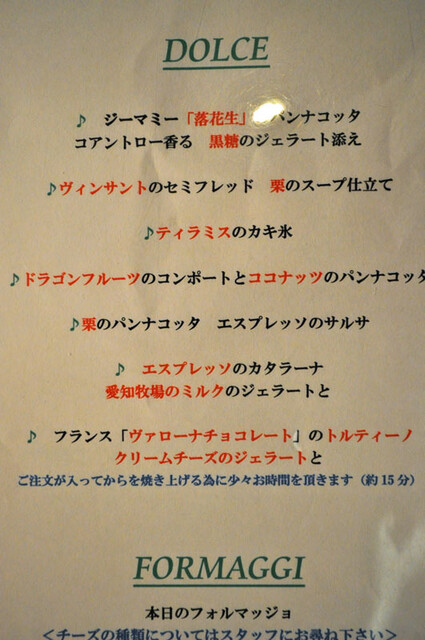 DOLCE
♪ ジーマミー「落花生」 パンナコッタ
コアントロー香る 黒糖のジェラート添え
♪ヴィンサントのセミフレッド 栗のスープ仕立て
♪ティラミスのカキ氷
♪ドラゴンフルーツのコンポートとココナッツのパンナコッタ
♪栗のパンナコッタ エスプレッソのサルサ
♪ エスプレッソのカタラーナ
愛知牧場のミルクのジェラートと
♪ フランス「ヴァローナチョコレート」のトルティーノ
クリームチーズのジェラートと
ご注文が入ってからを焼き上げる為に少々お時間を頂きます（約15分）
FORMAGGI
本日のフォルマッジョ
＜チーズの種類についてはスタッフにお尋ね下さい＞